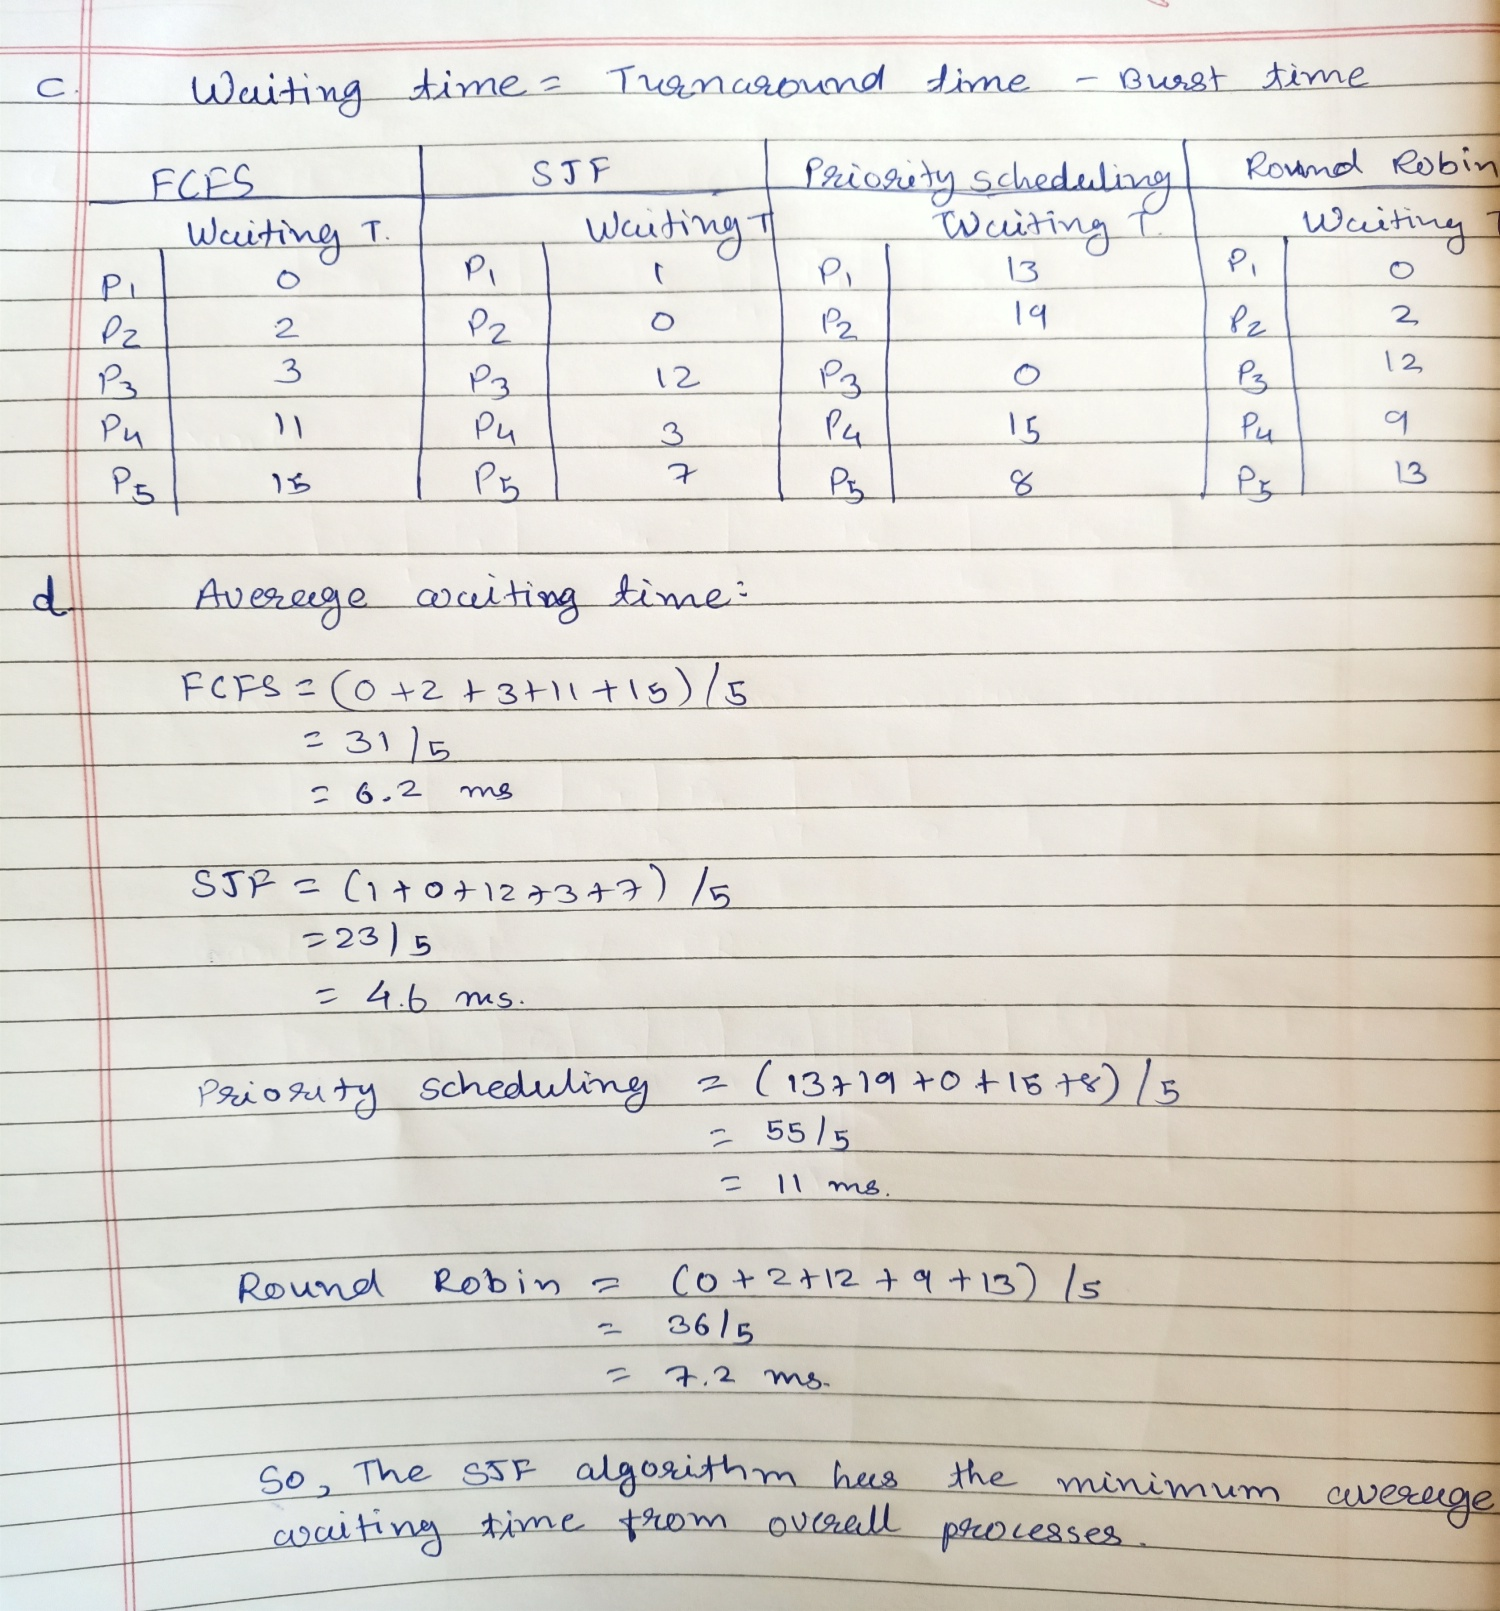 c. Waiting time = Turnaround time - Burst time
FCFS SJF Priority scheduling Round Robin
Waiting T. Waiting T Waiting T. Waiting T
P1 0 P1 1 P1 13 P1 0
P2 2 P2 0 P2 19 P2 2
P3 3 P3 12 P3 0 P3 12
P4 11 P4 3 P4 15 P4 9
P5 15 P5 7 P5 8 P5 13
d Average waiting time:
FCFS = (0 + 2 + 3 + 11 + 15) / 5
= 31 / 5
= 6.2 ms
SJF = (1 + 0 + 12 + 3 + 7) / 5
= 23 / 5
= 4.6 ms.
Priority scheduling = (13 + 19 + 0 + 15 + 8) / 5
= 55 / 5
= 11 ms.
Round Robin = (0 + 2 + 12 + 9 + 13) / 5
= 36 / 5
= 7.2 ms.
So, The SJF algorithm has the minimum average
waiting time from overall processes.